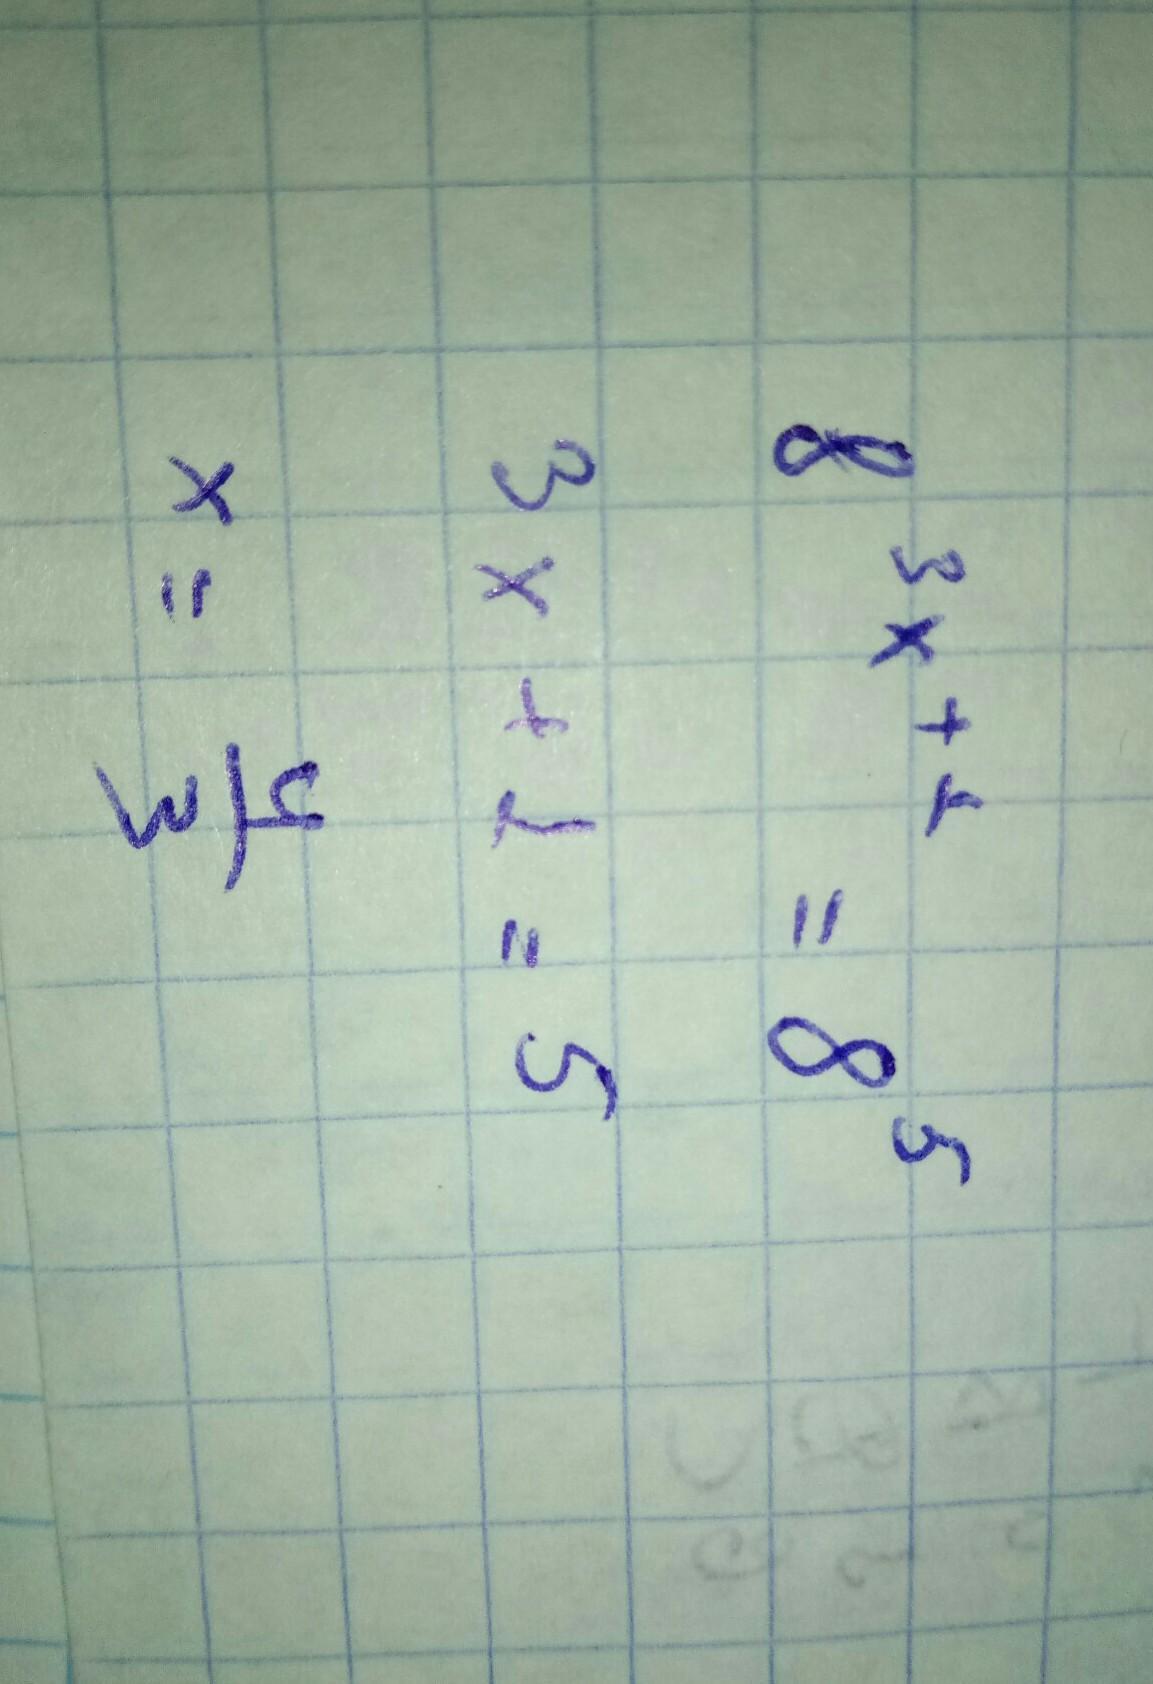 8^{3x+1} = 8^5
3x+1=5
x = 4/3